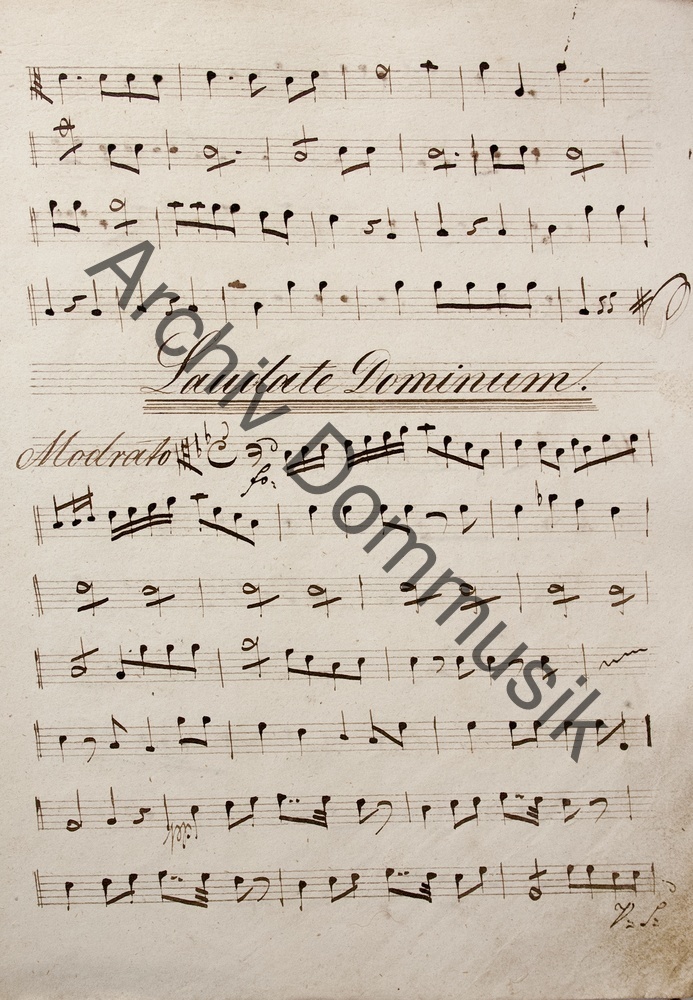 Laudate Dominum.
Modrato
fo:
V: S:
Archiv Dommusik